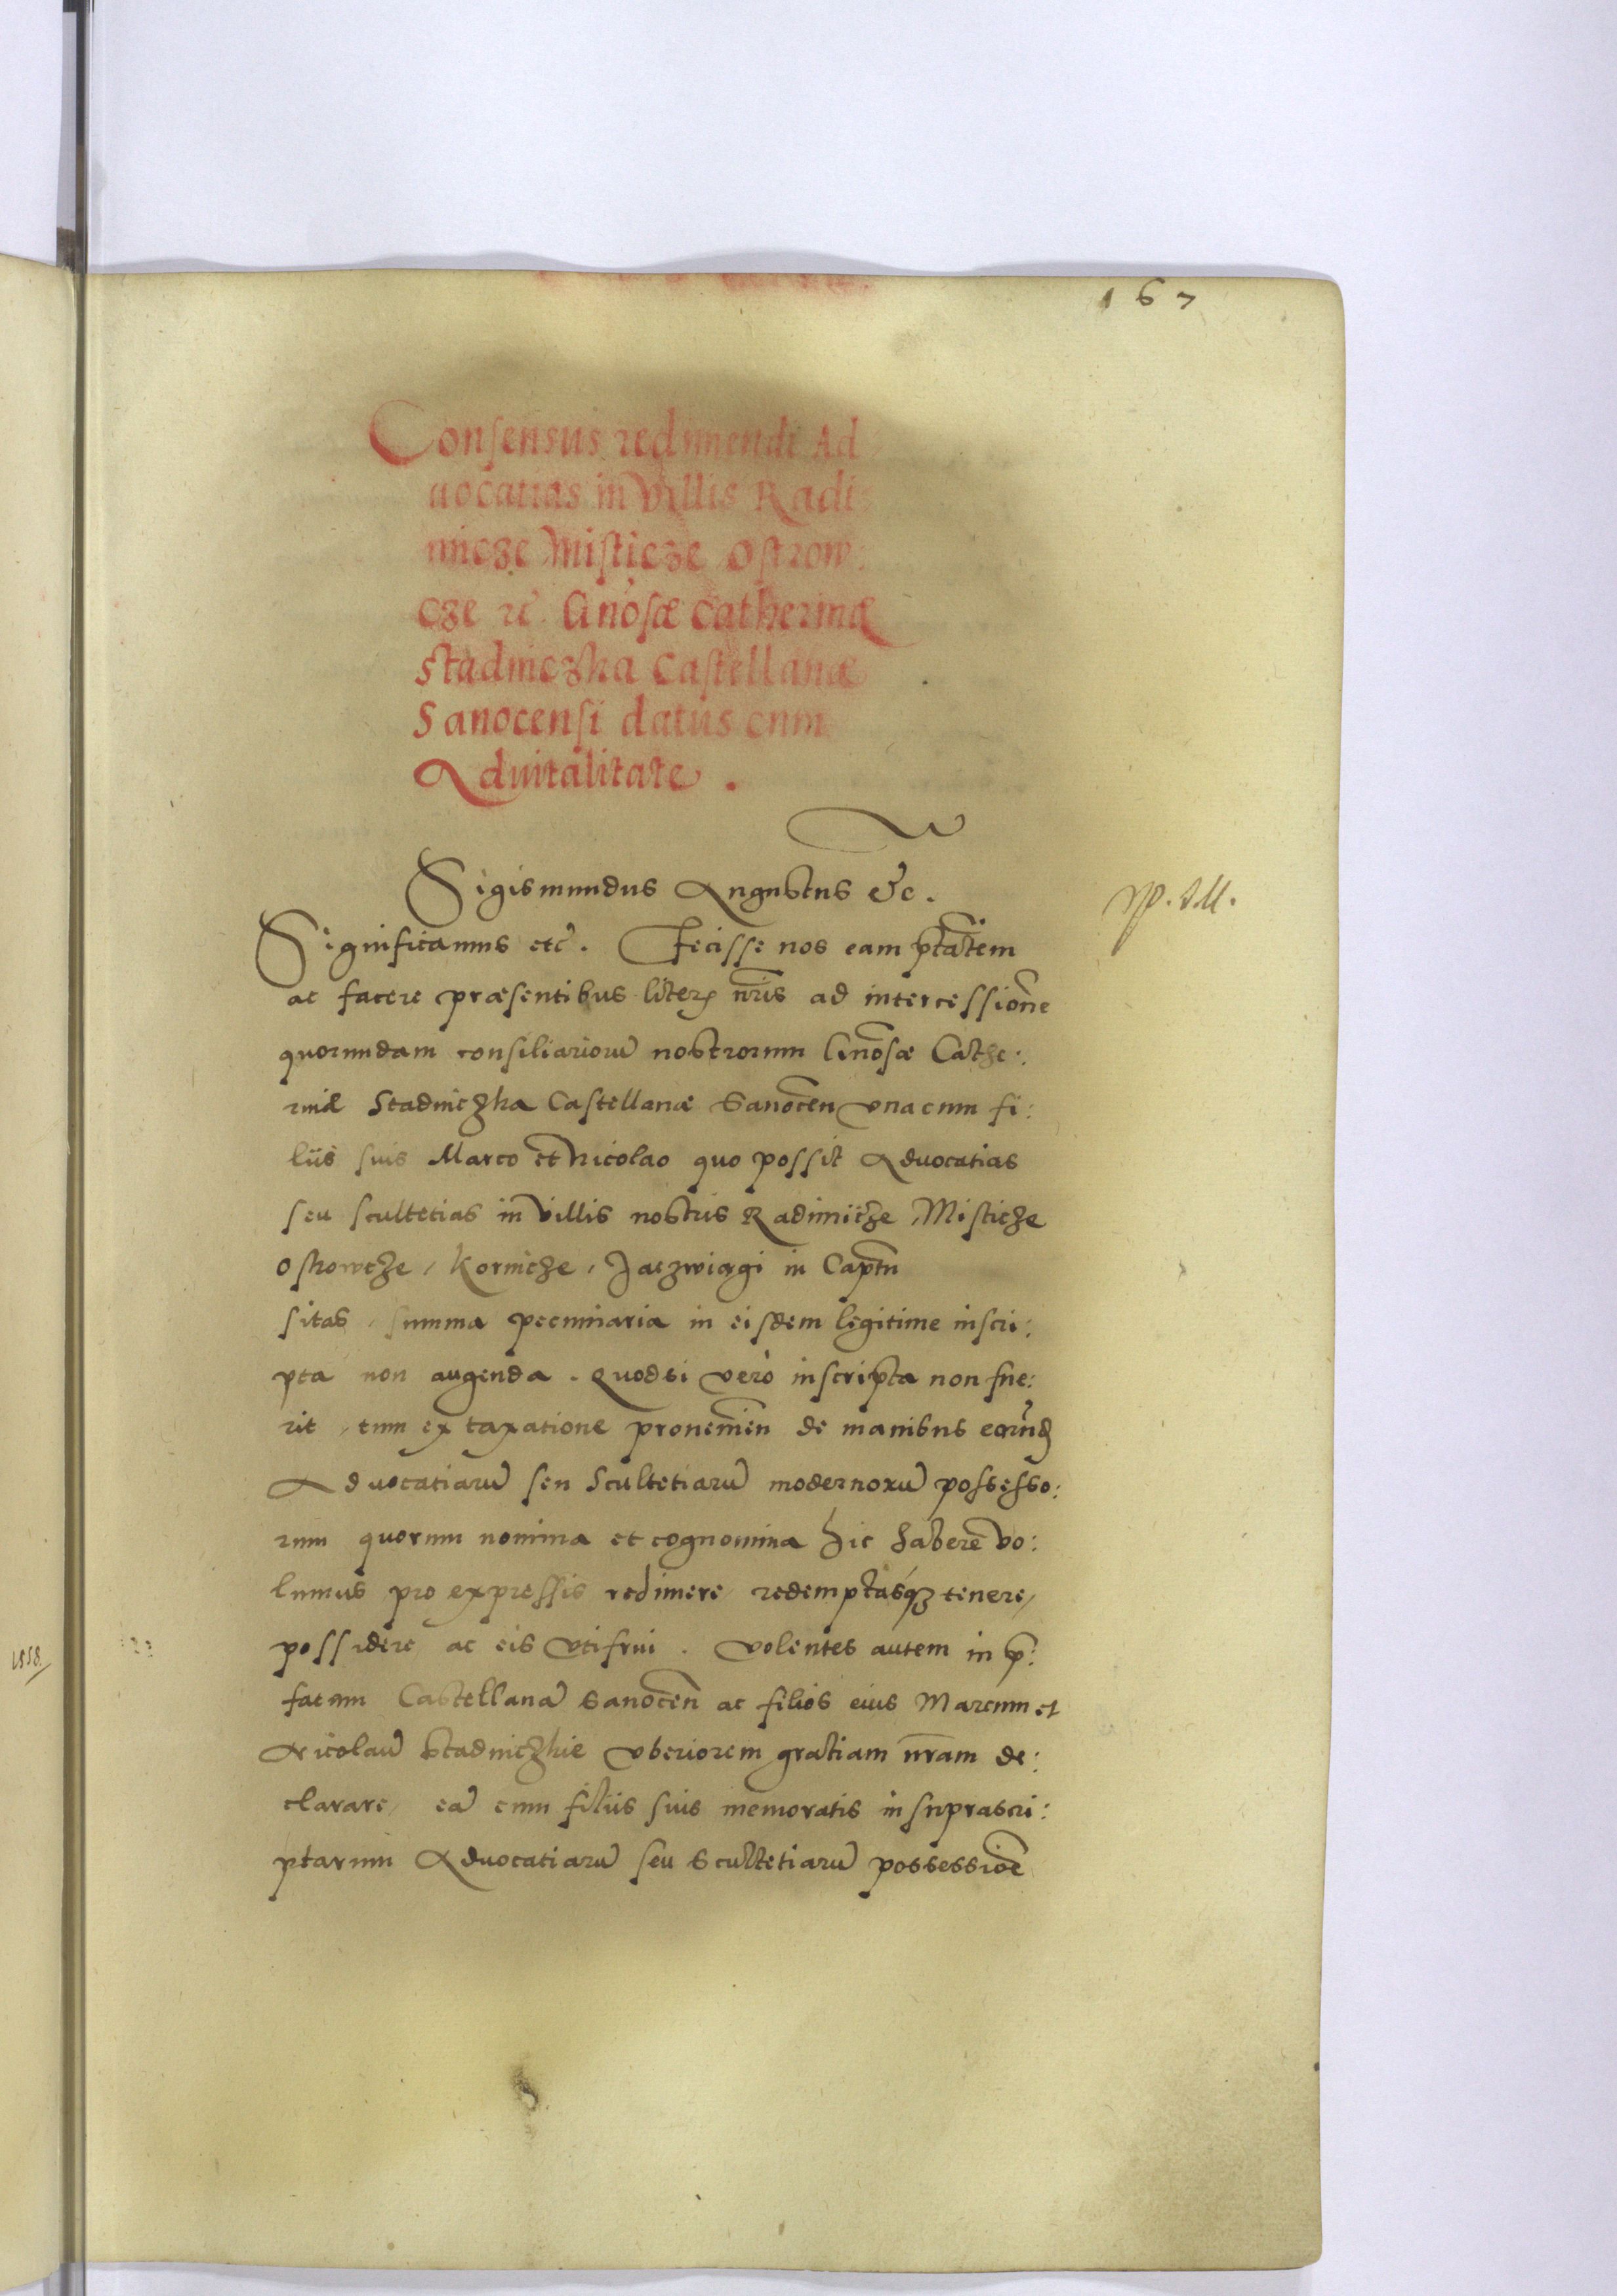 167
Consensus redimendi Ad
uocatias in Villis Radi:
nicze Misticze Ostrow:
cze etc̃ Gñosæ Catherinæ
Stadniczka Castellanæ
Sanocensi datus cum
Aduitalitate.
Sigismundus Augustus etc.
Significamus etc̃. Fecisse nos eam ptãtem
ac facere præsentibus literis nr̃is ad intercessionẽ
quorundam consiliariorũ nostrorum Gñosæ Cathe:
rinæ Stadniczka Castellanæ Sanocẽn vna cum fi:
liis suis Marco et Nicolao quo possit Aduocatias
seu scultetias in Villis nostris Radinicze, Misticze
Ostrowcze, Kornicze, Jaczwiągi in Captũ
sitas, summa pecuniaria in eisdem legitime inscri:
pta non augenda. Quodsi verò inscripta non fue:
rit, tum ex taxatione proueniẽn de manibus eorũd
Aduocatiarũ seu Scultetiarũ modernorũ possesso:
rum quorum nomina et cognomina hic haberẽ vo:
lumus pro expressis redimere, redemptasq́ʒ tenere,
possidere ac eis vtifrui. Volentes autem in p̃:
fatam Castellanã Sanocẽn ac filios eius Marcum et
Nicolaũ Stadniczkie vberiorem gratiam nr̃am de:
clarare, eã cum filiis suis memoratis in suprascri:
ptarum Aduocatiarũ seu Scultetiarũ possessiõe
1558.